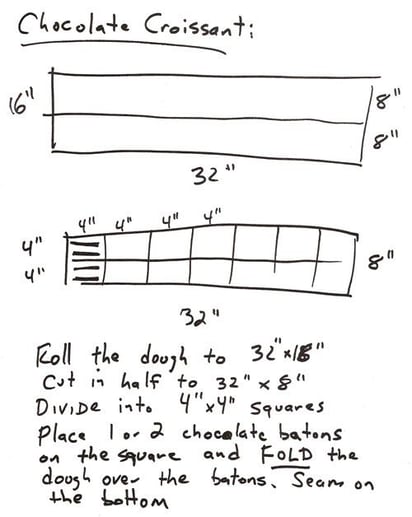 Chocolate Croissant:
16"
8"
8"
32"
4" 4" 4" 4"
4"
4"
8"
32"
Roll the dough to 32"x16"
Cut in half to 32" x 8"
Divide into 4"x4" squares
Place 1 or 2 chocolate batons
on the square and FOLD the
dough over the batons. Seam on
the bottom